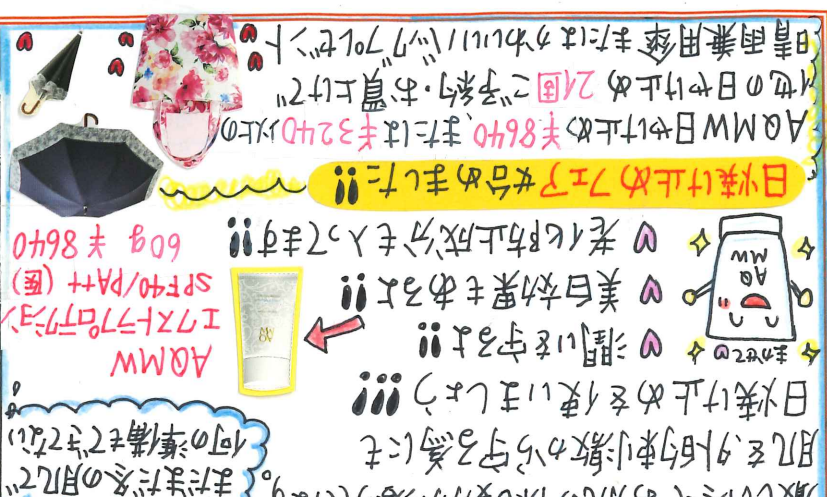 まだまだ冬の肌で
何の準備もできてない
肌を外的刺激から守る為にも
日焼け止めを使いましょう!!!
まかせて
AQ
MW
潤いを守るよ!!
美白効果もあるよ!!
老化防止成分も入ってます!!
AQMW
エクストラプロテクション
SPF40/PA++ (医)
60g ¥8640
日焼け止めフェア始めました!!
AQMW日やけ止め ¥8640、または ¥3240以上の
他の日やけ止め 2個 ご予約・お買上げで
晴雨兼用傘またはかわいいバッグプレゼント